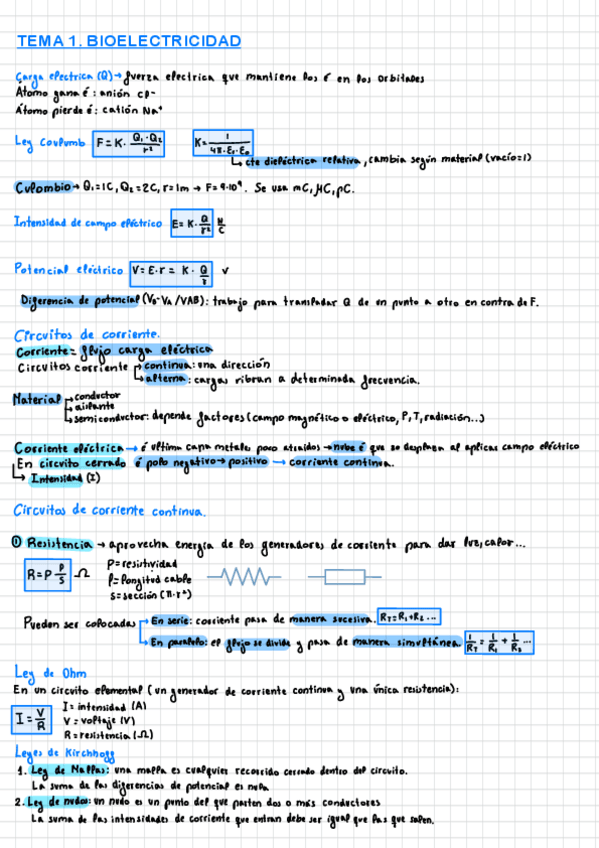 TEMA 1. BIOELECTRICIDAD
Carga eléctrica (Q) → fuerza electrica que mantiene los é en los orbitales
Átomo gana é: anión Cl⁻
Átomo pierde é: catión Na⁺
Ley Coulomb F = K · Q₁·Q₂ / r² K = 1 / 4π·ε₁·ε₀
↳ cte dieléctrica relativa, cambia según material (vacío=1)
Culombio → Q₁=1C, Q₂=2C, r=1m → F=9·10⁹. Se usa mC, μC, pC.
Intensidad de campo eléctrico E = K · Q / r² N / C
Potencial eléctrico V = E·r = K · Q / r V
Diferencia de potencial (VB-VA /VAB): trabajo para transladar Q de un punto a otro en contra de F.
Circuitos de corriente.
Corriente = flujo carga eléctrica
Circuitos corriente → continua: una dirección
↳ alterna: cargas vibran a determinada frecuencia.
Material → conductor
→ aislante
↳ semiconductor: depende factores (campo magnético o eléctrico, P, T, radiación...)
Corriente eléctrica → é ultima capa metales poco atraidos → nube é que se desplaza al aplicar campo eléctrico
En circuito cerrado é polo negativo → positivo → corriente continua.
↳ Intensidad (I)
Circuitos de corriente continua.
① Resistencia → aprovecha energía de los generadores de corriente para dar luz, calor...
R = ρ l / S Ω
ρ = resistividad
l = longitud cable
S = sección (π·r²)
Pueden ser colocadas → En serie: corriente pasa de manera sucesiva. RT = R₁ + R₂ ...
↳ En paralelo: el flujo se divide y pasa de manera simultánea. 1/RT = 1/R₁ + 1/R₂ ...
Ley de Ohm
En un circuito elemental (un generador de corriente continua y una única resistencia):
I = V / R
I = intensidad (A)
V = voltaje (V)
R = resistencia (Ω)
Leyes de Kirchhoff
1. Ley de Mallas: una malla es cualquier recorrido cerrado dentro del circuito.
La suma de las diferencias de potencial es nula
2. Ley de nudos: un nudo es un punto del que parten dos o más conductores
La suma de las intensidades de corriente que entran debe ser igual que las que salen.